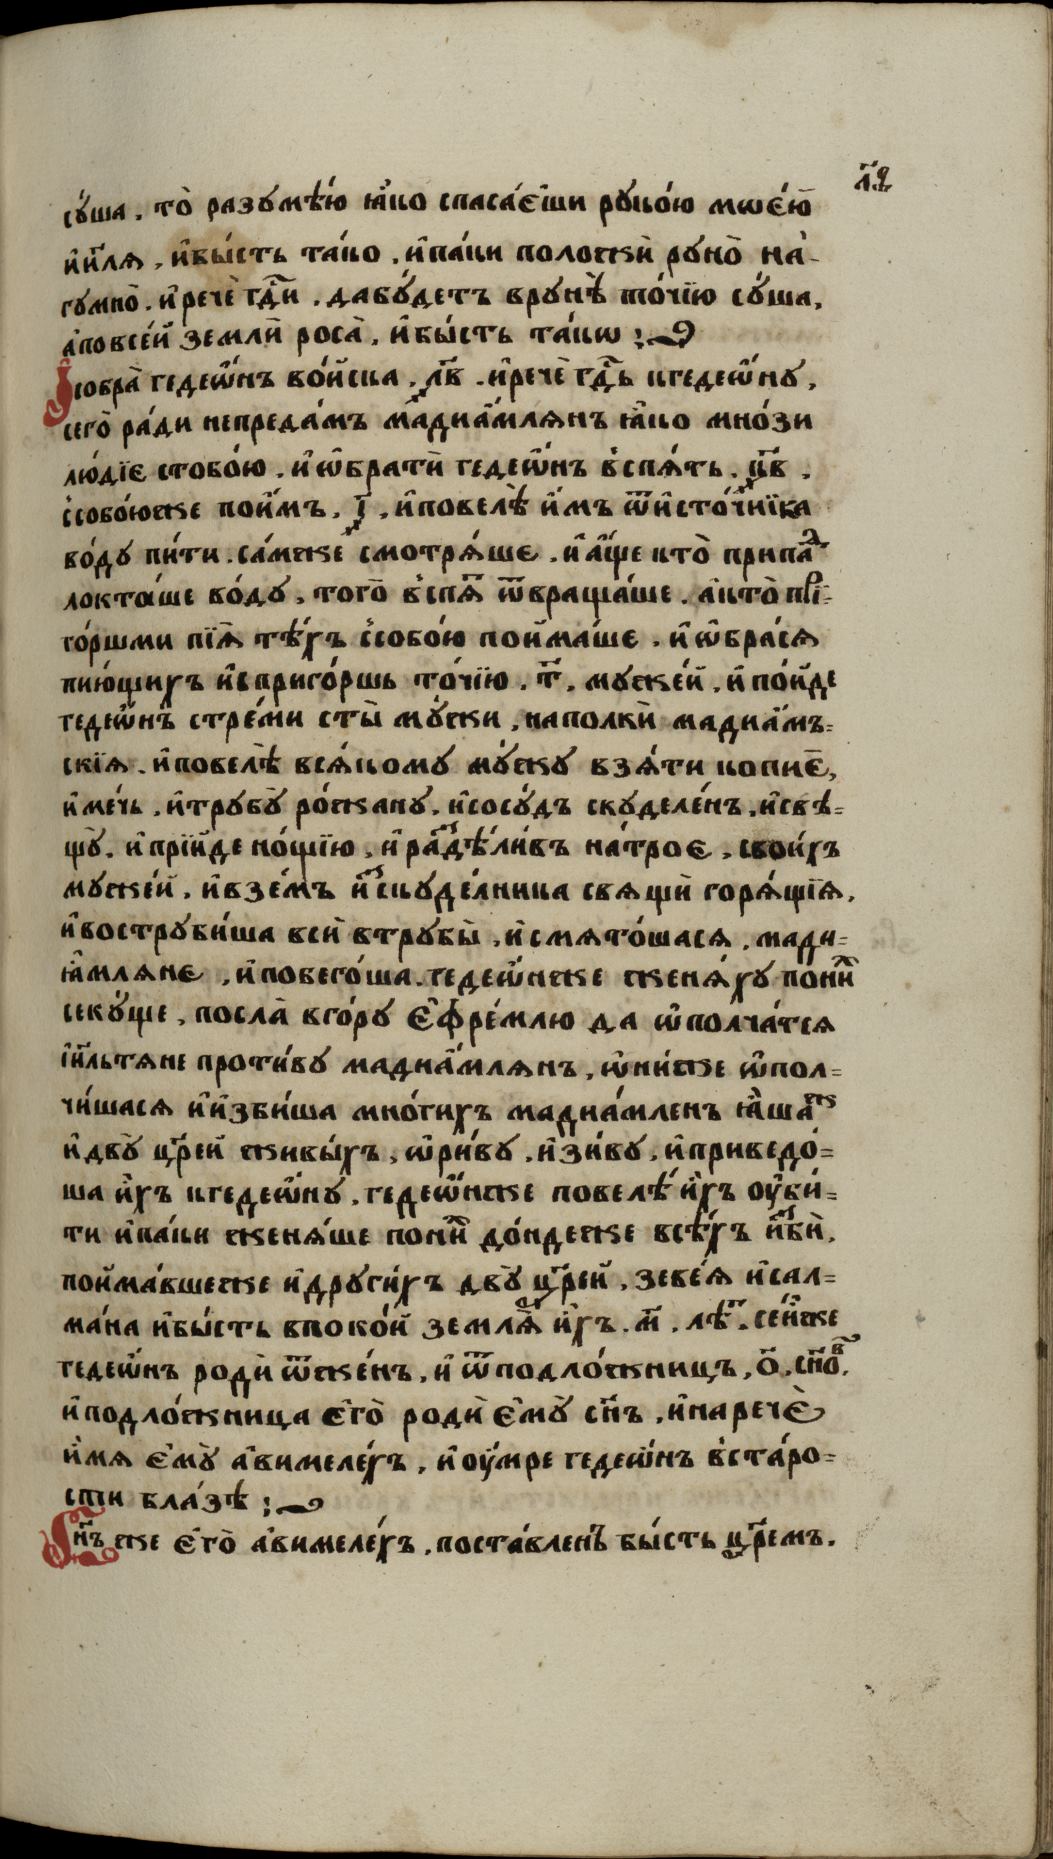 л҃ѕ
сꙋ́ша . то̀ разꙋмѣ́ю ꙗ҆́ко спаса́еши рꙋко́ю моє́ю
и҆и҃лѧ , и҆бы́сть та́ко , и҆па́ки положѝ рꙋно̀ на-
гꙋмно̀ . и҆речѐ гд҃и . дабꙋ́детъ врꙋнѣ̀ то́чїю сꙋ́ша ,
а҆повсе́й землѝ роса̀ , и҆бы́сть та́кѡ :~
І҆собра̀ гедеѡ҆́нъ во́йска , л҃в . и҆речѐ гд҃ь кгедеѡ҆́нꙋ ,
сего̀ ра́ди непреда́мъ мадиа҆́млѧнъ ꙗ҆́ко мно́зи
лю́дїе стобо́ю . и҆ѡ҆братѝ гедеѡ҆́нъ в̾спѧ́ть . к҃в .
с̾собо́юже пои҆́мъ , і҃ , и҆повелѣ̀ и҆̀мъ ѿи҆сто́чника
во́дꙋ пи́ти . са́мже смотрѧ́ше . и҆а҆́ще кто̀ припа́д
локта́ше во́дꙋ , того̀ в̾спѧ́т ѿвраща́ше . а҆кто̀ при-
го́ршми пїѧ̀ тѣ́хъ с̾собо́ю пойма́ше , и҆ѡ҆бра́сѧ
пию́щихъ и҆спригоршь то́чїю . т҃ , мꙋже́й , и҆по́йде
гедеѡ҆́нъ стре́ми сты̀ мꙋ́жи , наполкѝ мадиа҆́мъ=
скїѧ . и҆повелѣ̀ всѧ́комꙋ мꙋ́жꙋ взѧ́ти копиѐ ,
и҆ме́чь , и҆трꙋбꙋ̀ ро́жанꙋ , и҆сосꙋ́дъ скꙋделе́нъ , и҆свѣ=
щꙋ̀ . и҆прїи́де но́щїю , и҆раздѣли́въ на́троє , свои́хъ
мꙋже́й , и҆взе́мъ и҆зскꙋде́лника свѧщѝ горѧ́щїѧ ,
и҆вострꙋби́ша всѝ втрꙋбы̀ , и҆смѧто́шасѧ , мади=
ꙗ҆млѧне , и҆побего́ша . гедеѡ҆́нже женѧ́хꙋ пони́х
секꙋ́ще , посла̀ вго́рꙋ є҆фре́млю да ѡ҆полча́тсѧ
і҆и҃льтѧне проти́вꙋ мадиа҆́млѧнъ , ѡ҆ни́же ѡ҆пол=
чи́шасѧ и҆и҆зби́ша мно́гихъ мадиа́мленъ ꙗ҆́шаж
и҆двꙋ̀ цр҃ей живы́хъ , ѡ҆ри́вꙋ , и҆зи́вꙋ , и҆приведо́=
ша и҆̀хъ кгедеѡ҆́нꙋ , гедеѡ҆́нже повелѣ̀ и҆̀хъ оу҆би́=
ти и҆па́ки женѧ́ше пони́х до́ндеже всѣ́хъ и҆збѝ ,
пойма́вшеже и҆дрꙋги́хъ двꙋ̀ цр҃ей , зеве́ѧ и҆сал=
ма́на и҆бы́сть впоко́й землѧ̀ и҆̀хъ . м҃ . лѣ́т . се́йже
гедеѡ҆́нъ родѝ ѿже́нъ , и҆ ѿподло́жницъ , о҃ , сн҃ов ,
и҆подло́жница є҆го̀ родѝ є҆мꙋ̀ сн҃ъ , и҆наречѐ
и҆́мѧ є҆мꙋ̀ а҆вимеле́хъ , и҆оу҆́мре гедеѡ҆́нъ в̾ста́ро=
сти бла́зѣ :~
Сн҃ъ же є҆го̀ а҆вимеле́хъ , поста́вленъ бы́сть цр҃емъ .